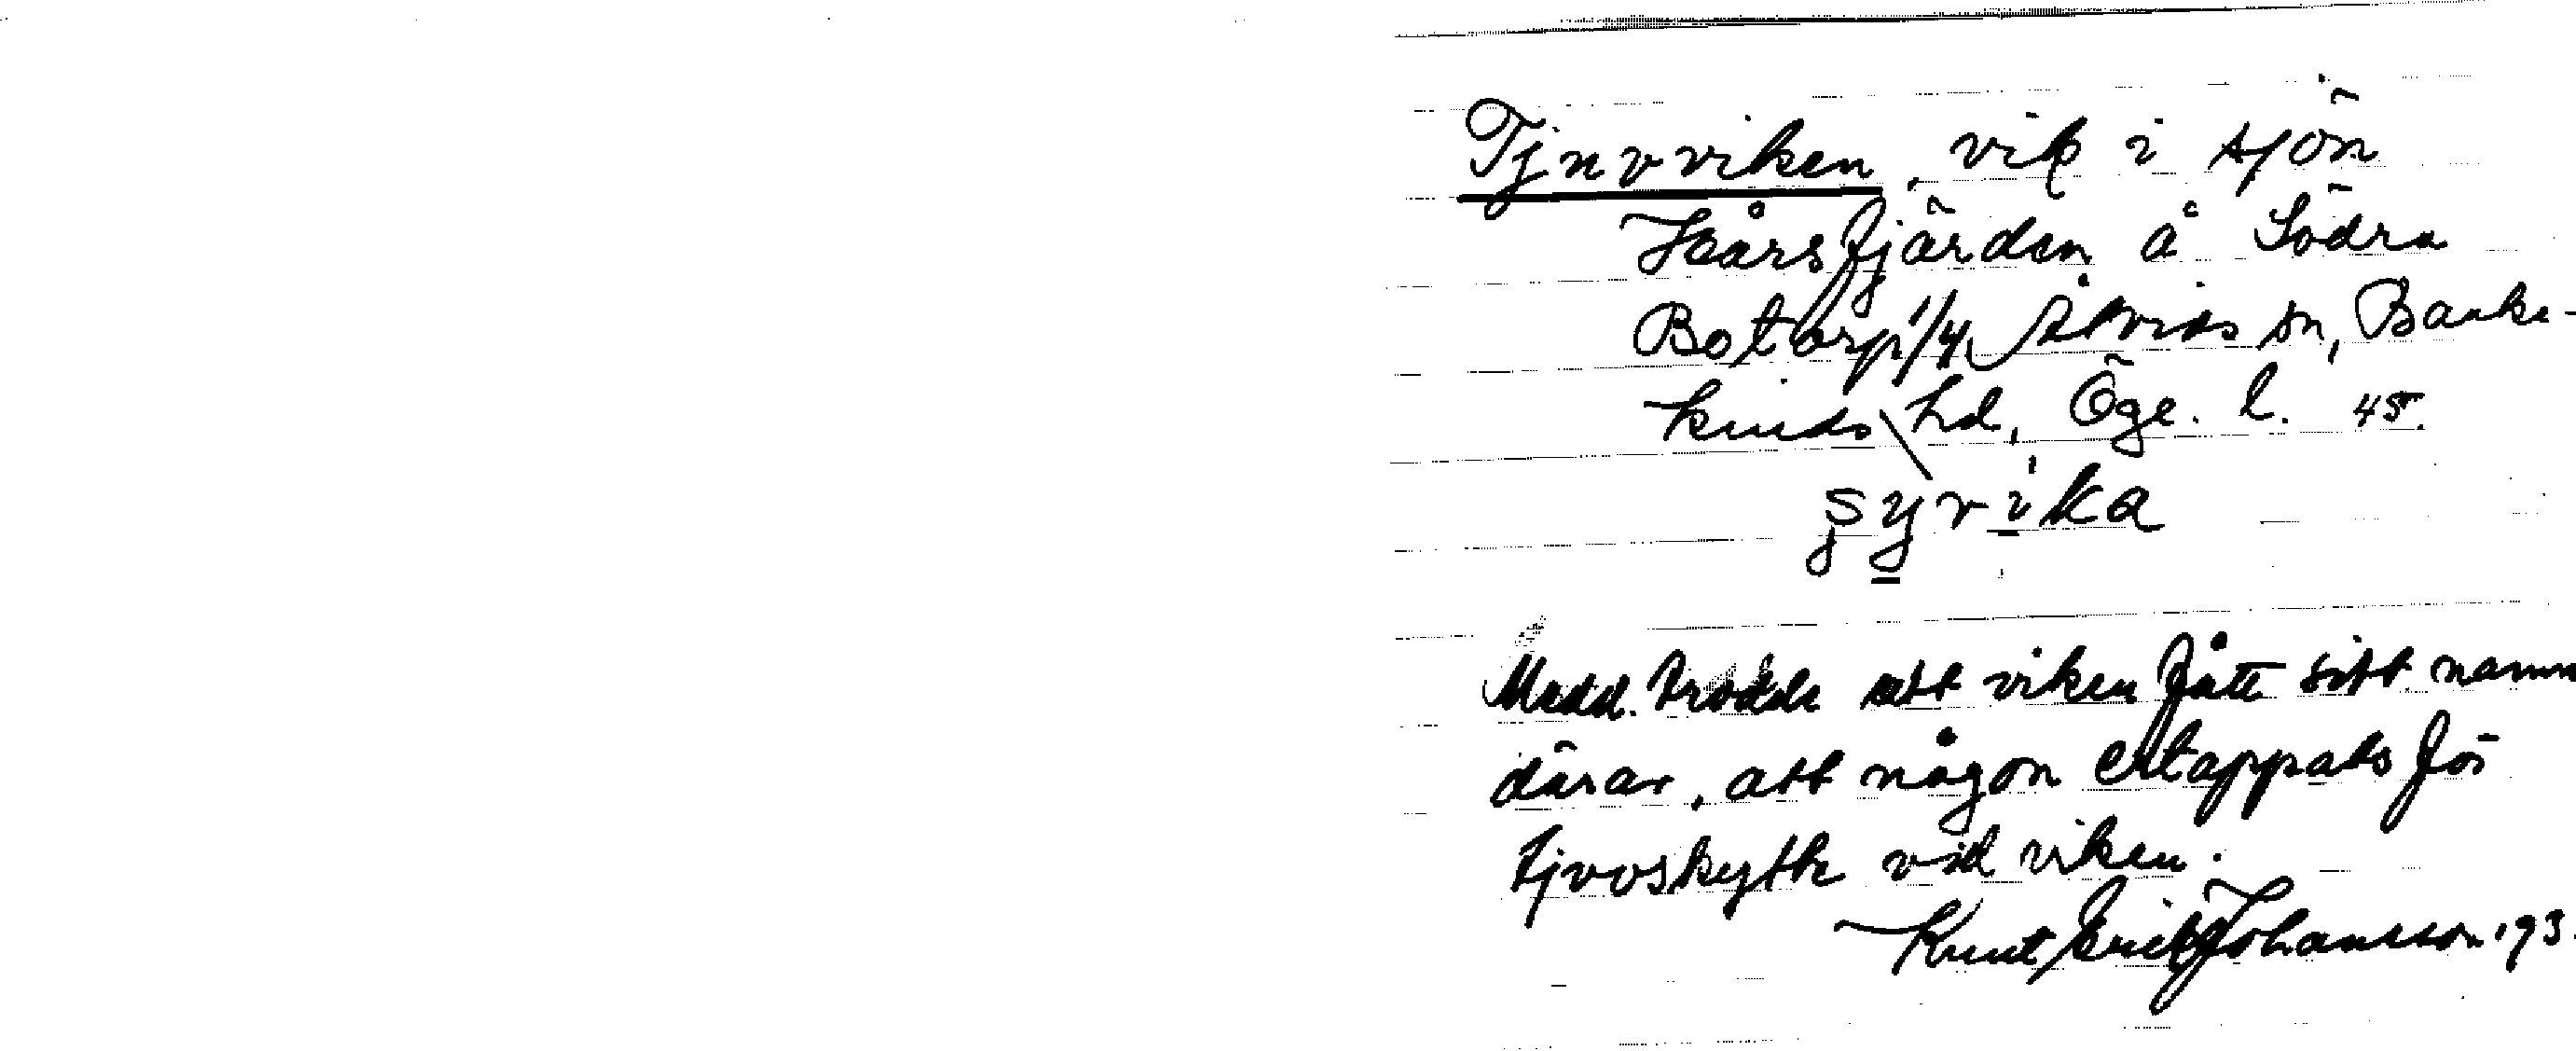 Tjuvviken, vik i sjön
Hårsfjärden å Södra
Botorp 1/4, Åtvids sn, Banke-
kinds hd, Öge. l. 45.
ʂyvika
Medd. trodde att viken fått sitt namn
därav, att någon ertappats för
tjvvskytte vid viken.
Knut Erik Johansson 193